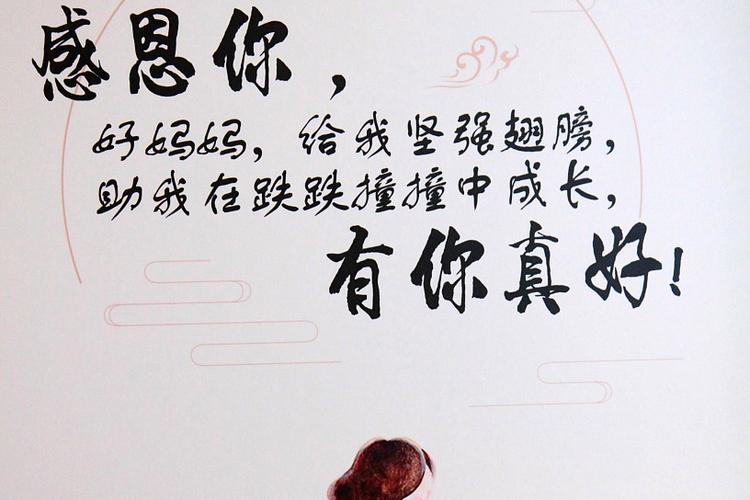 感恩你，
好妈妈，给我坚强翅膀，
助我在跌跌撞撞中成长，
有你真好！